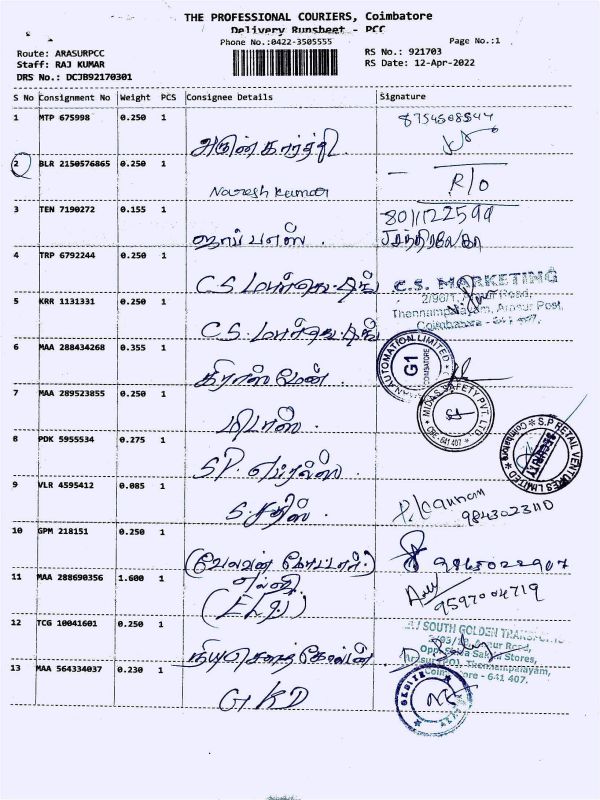 THE PROFESSIONAL COURIERS, Coimbatore
Delivery Runsheet - PCC
Phone No.:0422-3505555
Page No.:1
Route: ARASURPCC
Staff: RAJ KUMAR
DRS No.: DCJB92170301
RS No.: 921703
RS Date: 12-Apr-2022
S No Consignment No Weight PCS Consignee Details Signature
1 MTP 675998 0.250 1
அருண் கார்த்தி.
2 BLR 2150576865 0.250 1
Naresh kumar R/o
3 TEN 7190272 0.155 1
ஜாப் பஸ்.
4 TRP 6792244 0.250 1
C.S. மார்கெட்டிங் C.S. MARKETING
5 KRR 1131331 0.250 1
Thennampalayam, Arasur Post,
Coimbatore - 641 407.
C.S. மார்கெட்டிங்
6 MAA 288434268 0.355 1
AUTOMATION LIMITED COIMBATORE G1
7 MAA 289523855 0.250 1
மிடாஸ். MIDAS SAFETY PVT. LTD CBE-641 407
8 PDK 5955534 0.275 1
S.P. S.P. RETAIL VENTURES LIMITED Coimbatore SECURITY
9 VLR 4595412 0.085 1
S. சதிஸ்.
9843023110
10 GPM 218151 0.250 1
(வேலவன் மோட்டார்.)
11 MAA 288690356 1.600 1
எல்ஜி
(ELGi) 9597004719
12 TCG 10041601 0.250 1
SOUTH GOLDEN TRANSPORTS
Arasur Road,
Opp. Shiva Sakthi Stores,
Arasur (PO), Thennampalayam,
Coimbatore - 641 407.
13 MAA 564334037 0.230 1
GKD